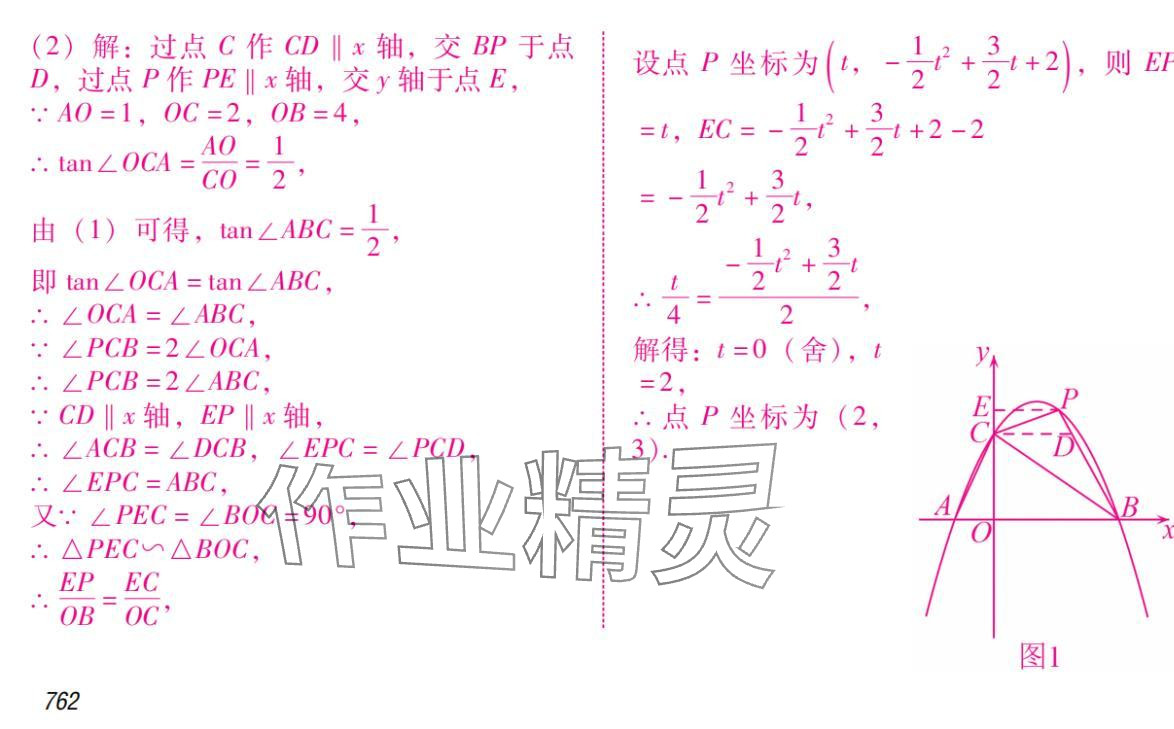 (2) 解：过点 C 作 CD∥x 轴，交 BP 于点
D，过点 P 作 PE∥x 轴，交 y 轴于点 E，
∵ AO=1，OC=2，OB=4，
∴ tan∠OCA=AO/CO=1/2，
由（1）可得，tan∠ABC=1/2，
即 tan∠OCA=tan∠ABC，
∴ ∠OCA=∠ABC，
∵ ∠PCB=2∠OCA，
∴ ∠PCB=2∠ABC，
∵ CD∥x 轴，EP∥x 轴，
∴ ∠ACB=∠DCB，∠EPC=∠PCD，
∴ ∠EPC=ABC，
又∵ ∠PEC=∠BOC=90°，
∴ △PEC∽△BOC，
∴ EP/OB=EC/OC，
设点 P 坐标为(t，-1/2t²+3/2t+2)，则 EP
=t，EC=-1/2t²+3/2t+2-2
=-1/2t²+3/2t，
∴ t/4=(-1/2t²+3/2t)/2，
解得：t=0（舍），t
=2，
∴ 点 P 坐标为（2，
3）.
y
E
P
C
D
A
B
O
x
图1
作业精灵
762